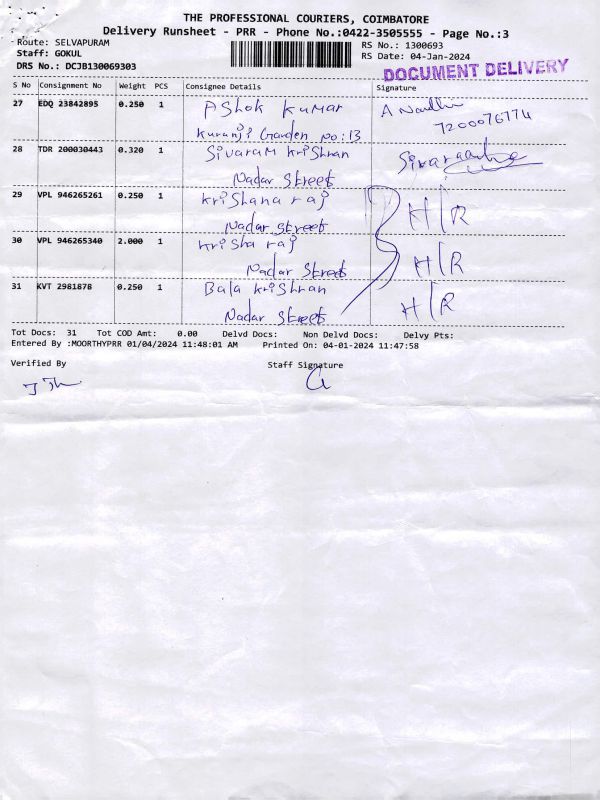 THE PROFESSIONAL COURIERS, COIMBATORE
Delivery Runsheet - PRR - Phone No.:0422-3505555 - Page No.:3
Route: SELVAPURAM RS No.: 1300693
Staff: GOKUL RS Date: 04-Jan-2024
DRS No.: DCJB130069303 DOCUMENT DELIVERY
S No Consignment No Weight PCS Consignee Details Signature
27 EDQ 23842895 0.250 1 Ashok Kumar A Nandhi
7200076774
Kurunji Garden No:13
28 TDR 200030443 0.320 1 Sivaram Krishnan
Nadar Street
29 VPL 946265261 0.250 1 Krishana raj H/R
Nadar Street
30 VPL 946265340 2.000 1 Krisha raj H/R
Nadar Street
31 KVT 2981878 0.250 1 Bala Krishnan H/R
Nadar Street
Tot Docs: 31 Tot COD Amt: 0.00 Delvd Docs: Non Delvd Docs: Delvy Pts:
Entered By :MOORTHYPRR 01/04/2024 11:48:01 AM Printed On: 04-01-2024 11:47:58
Verified By Staff Signature